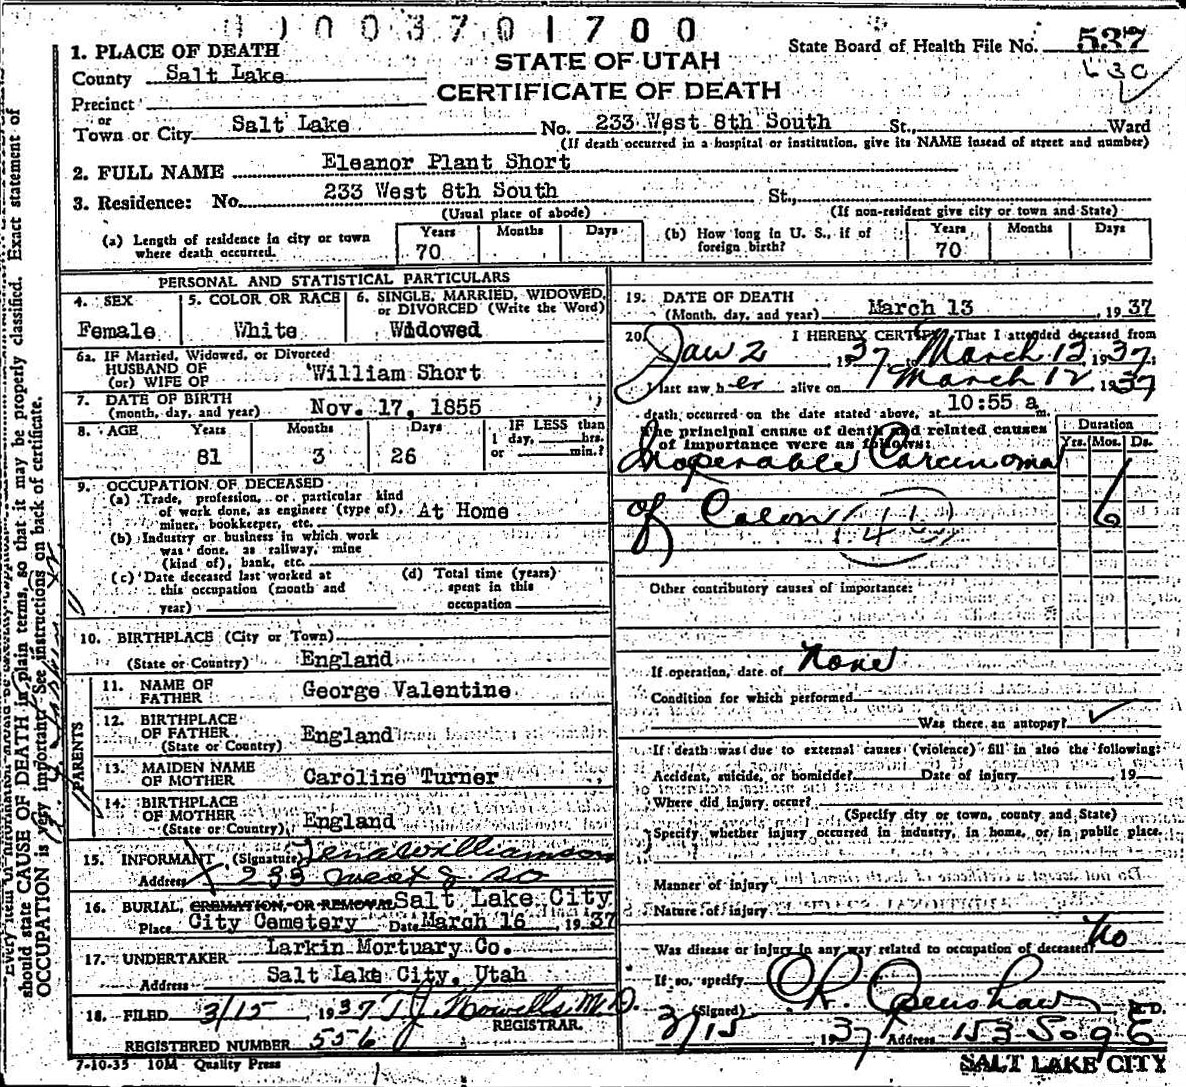 1003701700
1. PLACE OF DEATH
STATE OF UTAH
CERTIFICATE OF DEATH
State Board of Health File No. 537
County Salt Lake
Precinct
or
Town or City Salt Lake No. 233 West 8th South St., Ward
(If death occurred in a hospital or institution, give its NAME insead of street and number)
2. FULL NAME Eleanor Plant Short
3. Residence: No. 233 West 8th South St.,
(Usual place of abode) (If non-resident give city or town and State)
(a) Length of residence in city or town where death occurred. Years 70 Months Days
(b) How long in U. S., if of foreign birth? Years 70 Months Days
PERSONAL AND STATISTICAL PARTICULARS
4. SEX Female
5. COLOR OR RACE White
6. SINGLE, MARRIED, WIDOWED, or DIVORCED (Write the Word) Widowed
6a. IF Married, Widowed, or Divorced
HUSBAND OF
(or) WIFE OF William Short
7. DATE OF BIRTH
(month, day, and year) Nov. 17, 1855
8. AGE Years 81 Months 3 Days 26 IF LESS than 1 day, hrs. or min.?
9. OCCUPATION OF DECEASED
(a) Trade, profession, or particular kind of work done, as engineer (type of), miner, bookkeeper, etc. At Home
(b) Industry or business in which work was done, as railway, mine (kind of), bank, etc.
(c) Date deceased last worked at this occupation (month and year)
(d) Total time (years) spent in this occupation
10. BIRTHPLACE (City or Town)
(State or Country) England
PARENTS
11. NAME OF FATHER George Valentine
12. BIRTHPLACE OF FATHER (State or Country) England
13. MAIDEN NAME OF MOTHER Caroline Turner
14. BIRTHPLACE OF MOTHER (State or Country) England
15. INFORMANT (Signature) Lena Williamson
Address 233 West 8 So
16. BURIAL, CREMATION, OR REMOVAL Salt Lake City
Place City Cemetery Date March 16, 1937
17. UNDERTAKER Larkin Mortuary Co.
Address Salt Lake City, Utah
18. FILED 3/15 1937 T J Howells M.D.
REGISTRAR.
REGISTERED NUMBER 556
7-10-35 10M Quality Press
19. DATE OF DEATH
(Month, day, and year) March 13, 1937
20. I HEREBY CERTIFY, That I attended deceased from
Jan 2 1937 to March 12 1937;
I last saw her alive on March 12, 1937
death occurred on the date stated above, at 10:55 a m.
The principal cause of death and related causes of importance were as follows:
Duration Yrs. Mos. Ds.
Inoperable Carcinoma
of Colon 6
Other contributory causes of importance:
If operation, date of None
Condition for which performed
Was there an autopsy?
If death was due to external causes (violence) fill in also the following:
Accident, suicide, or homicide? Date of injury, 19
Where did injury occur?
(Specify city or town, county and State)
Specify whether injury occurred in industry, in home, or in public place.
Manner of injury
Nature of injury
Was disease or injury in any way related to occupation of deceased? No
If so, specify
(Signed) M.D.
3/15 1937 Address 153 So 9 E
SALT LAKE CITY
should state CAUSE OF DEATH in plain terms, so that it may be properly classified. Exact statement of
OCCUPATION is very important. See instructions on back of certificate.